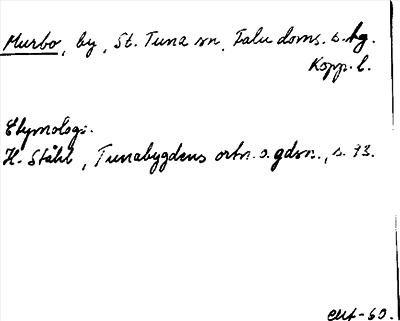 Murbo, by, St. Tuna sn, Falu doms. s. hg.
Kopp. l.
Etymologi.
H. Ståhl, Tunabygdens ortn. o. gdsn., s. 73.